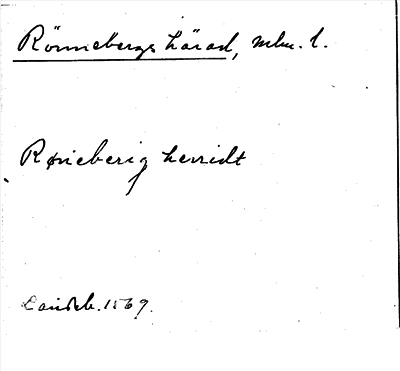 Rönnebergs härad, mlm. l.
Røneberig herridt
Landeb. 1569.